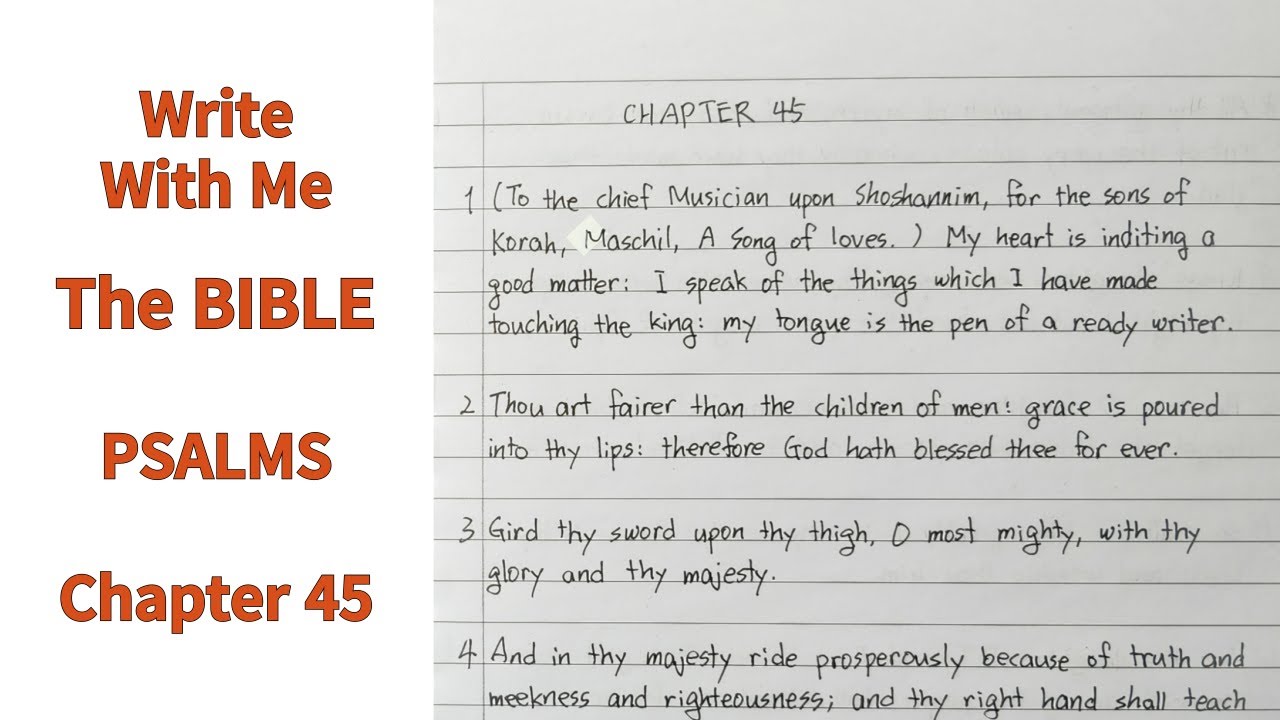 Write
With Me
The BIBLE
PSALMS
Chapter 45
CHAPTER 45
1 (To the chief Musician upon Shoshannim, for the sons of
Korah, Maschil, A Song of loves.) My heart is inditing a
good matter: I speak of the things which I have made
touching the king: my tongue is the pen of a ready writer.
2 Thou art fairer than the children of men: grace is poured
into thy lips: therefore God hath blessed thee for ever.
3 Gird thy sword upon thy thigh, O most mighty, with thy
glory and thy majesty.
4 And in thy majesty ride prosperously because of truth and
meekness and righteousness; and thy right hand shall teach